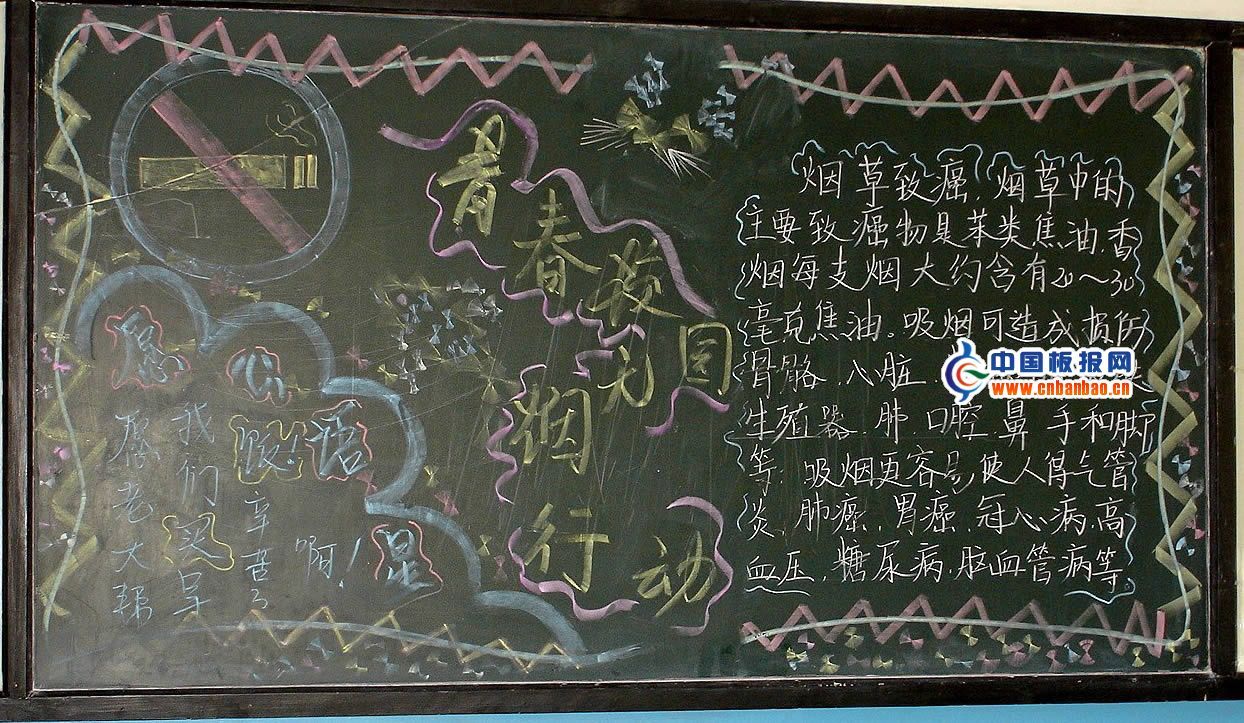 青春校园
无烟行动
烟草致癌,烟草中的
主要致癌物是苯类焦油,香
烟每支烟大约含有20～30
毫克焦油。吸烟可造成损伤
骨骼,心脏,
生殖器,肺,口腔,鼻 手和脚
等,吸烟更容易使人得气管
炎,肺癌,胃癌,冠心病,高
血压,糖尿病,脑血管病等。
中国板报网
www.cnbanbao.cn
老大帮
我们买早
饭!辛苦了
语啊!